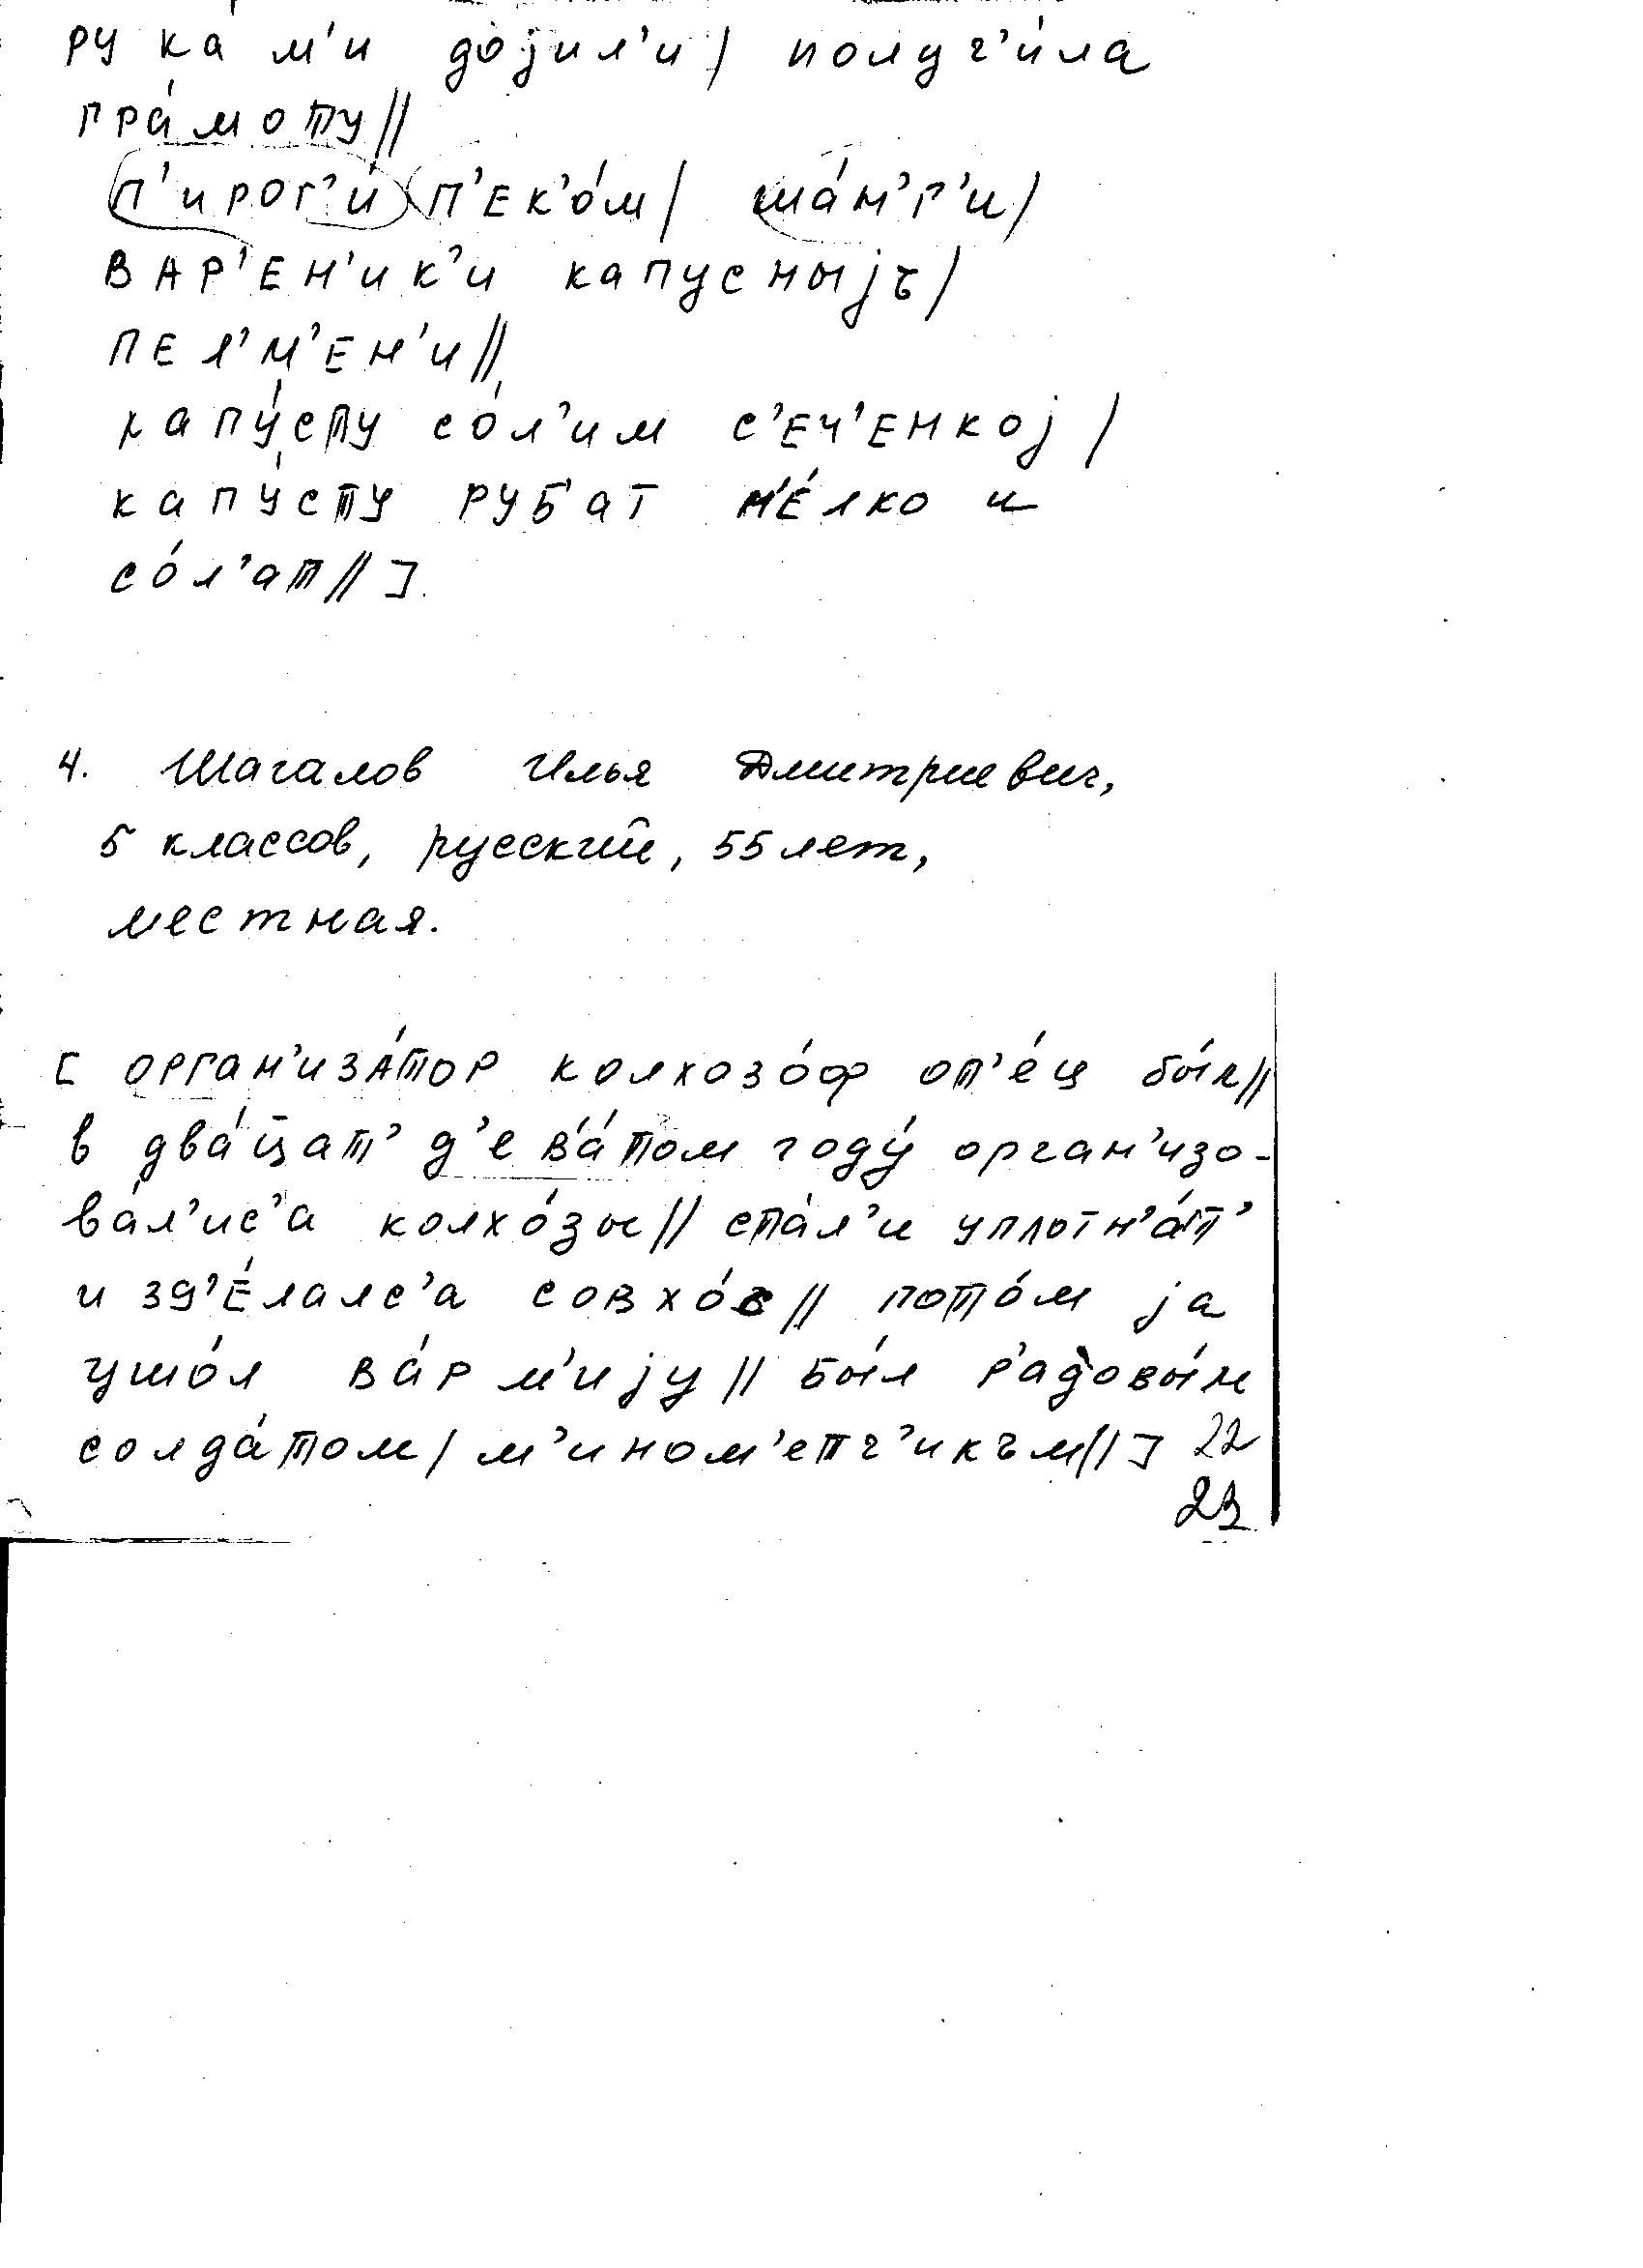 рука́м'и дојил'и/ получ'и́ла
гра́моту//
п'ирог'и́ п'ек'о́м/ ша́н'г'и/
вар'ен'ик'и капусныјъ/
пел'м'ен'и//
капу́сту со́л'им с'еч'енкој/
капу́сту руб'ат м'е́лко и
со́л'ат//].
4. Шагалов Илья Дмитриевич,
5 классов, русский, 55 лет,
местная.
[ орган'иза́тор колхозо́ф от'е́ц бы́л//
в два́цат' д'ев'а́том году́ орган'изо-
ва́л'ис'а колхо́зы// ста́л'и уплотн'а́т'
и зд'е́лалс'а совхо́с// пото́м ја
ушо́л ва́рм'ију// бы́л р'адовы́м
солда́том/ м'ином'етч'икъм//] 22
23